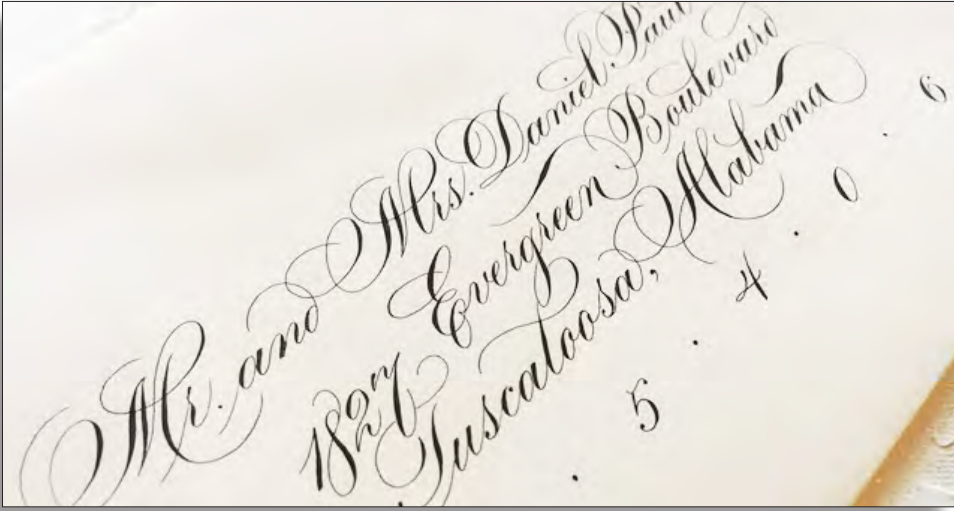 Mr. and Mrs. Daniel Paul
1827 Evergreen Boulevard
Tuscaloosa, Alabama
· 5 · 4 · 0 · 6